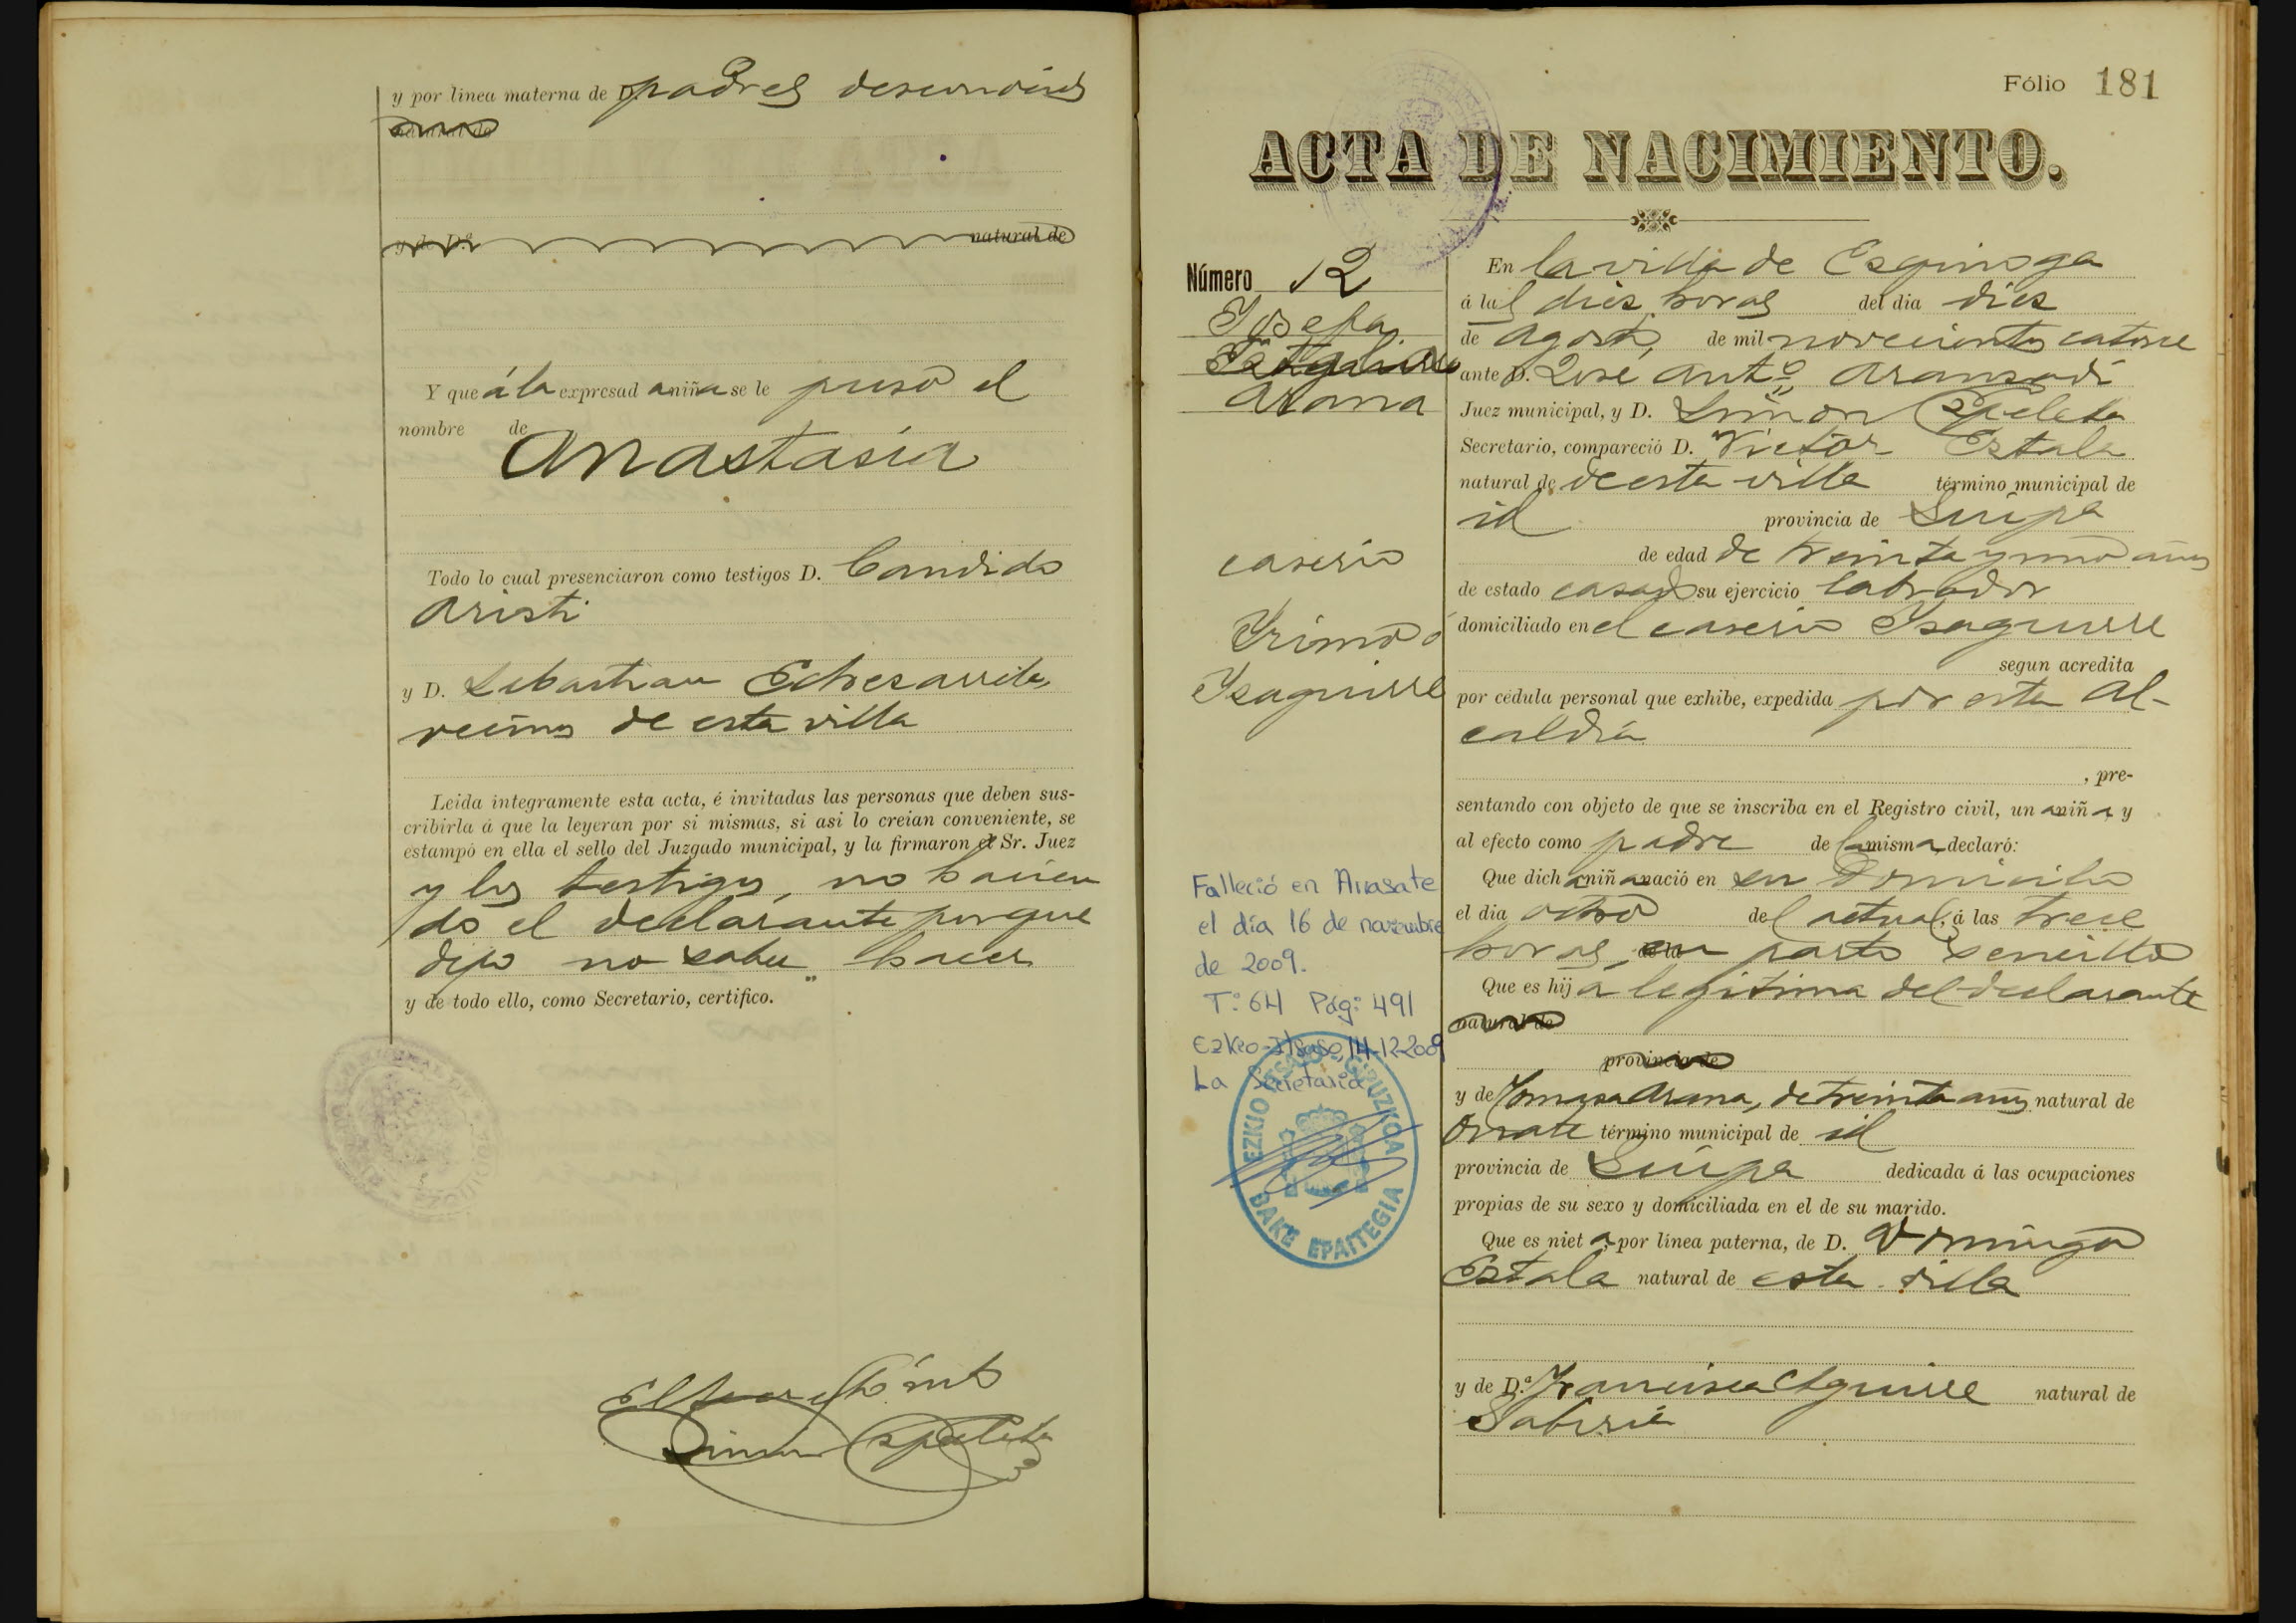 y por línea materna de D. padres desconocidos
natural de
y de D.ª natural de
Y que á la expresad a niña se le puso el
nombre de
Anastasia
Todo lo cual presenciaron como testigos D. Candido
Aristi
y D. Sebastian Echezarreta,
vecinos de esta villa
Leida íntegramente esta acta, é invitadas las personas que deben sus-
cribirla á que la leyeran por si mismas, si asi lo creian conveniente, se
estampó en ella el sello del Juzgado municipal, y la firmaron el Sr. Juez
y los testigos, no hacien
do el declarante porque
dijo no saber hacer
y de todo ello, como Secretario, certifico.
Simon Espeleta
Fólio 181
ACTA DE NACIMIENTO.
Número 12
Josefa
Arana
caserio
Isaguirre
Falleció en Arrasate
el día 16 de noviembre
de 2009.
Tº: 64 Pág: 491
Ezkio-Itsaso, 14-12-2009
La Secretaria
EZKIO ITSASO - GIPUZKOA
BAKE EPAITEGIA
En la villa de Ezquioga
á las diez horas del dia diez
de agosto de mil novecientos catorce
ante D. José Antº Aranzadi
Juez municipal, y D. Simon Espeleta
Secretario, compareció D. Victor Eztala
natural de de esta villa término municipal de
id provincia de Guipa
de edad de treinta y uno años
de estado casado su ejercicio labrador
domiciliado en el caserio Isaguirre
segun acredita
por cédula personal que exhibe, expedida por esta Al-
caldía
, pre-
sentando con objeto de que se inscriba en el Registro civil, un a niñ a y
al efecto como padre de la misma, declaró:
Que dich a niñ a nació en su domicilio
el dia ocho del actual, á las trece
horas, en parto sencillo
Que es hij a legitima del declarante
natural de
provincia de
y de Tomasa Arana, de treinta años natural de
Oñate término municipal de id
provincia de Guipa dedicada á las ocupaciones
propias de su sexo y domiciliada en el de su marido.
Que es niet a por línea paterna, de D. Domingo
Eztala natural de esta villa
y de D.ª Francisca Aguirre natural de
Gabiria